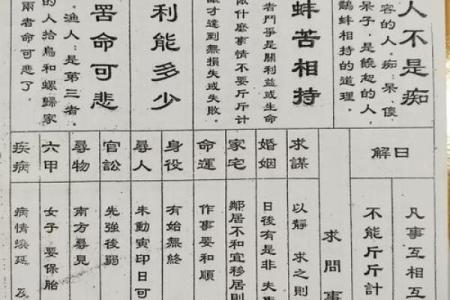 人不是痴
容的人，痴：呆，傻
呆子，是饒恕的人
鷸蚌相持的道理。
蚌苦相持
者鬥爭是關利益或生命
限什麼事情不要斤斤計
才達到無損失或失敗。
利能多少
罟命可悲
漁人：是第三者，
的人拾鳥和螺歸家
兩者命可悲了。
日解
凡事互相互
不能斤斤計
求問事
求謀
以靜 求之則
婚姻
日後有是非 失敗
家宅
鄰居不和宜移居則
命運
作事要和順
身役
有始無終
尋人
未動寅卯日可
官訟
先強後弱
尋物
南方尋見
六甲
女子 要保胎
疾病
病情緩延 及